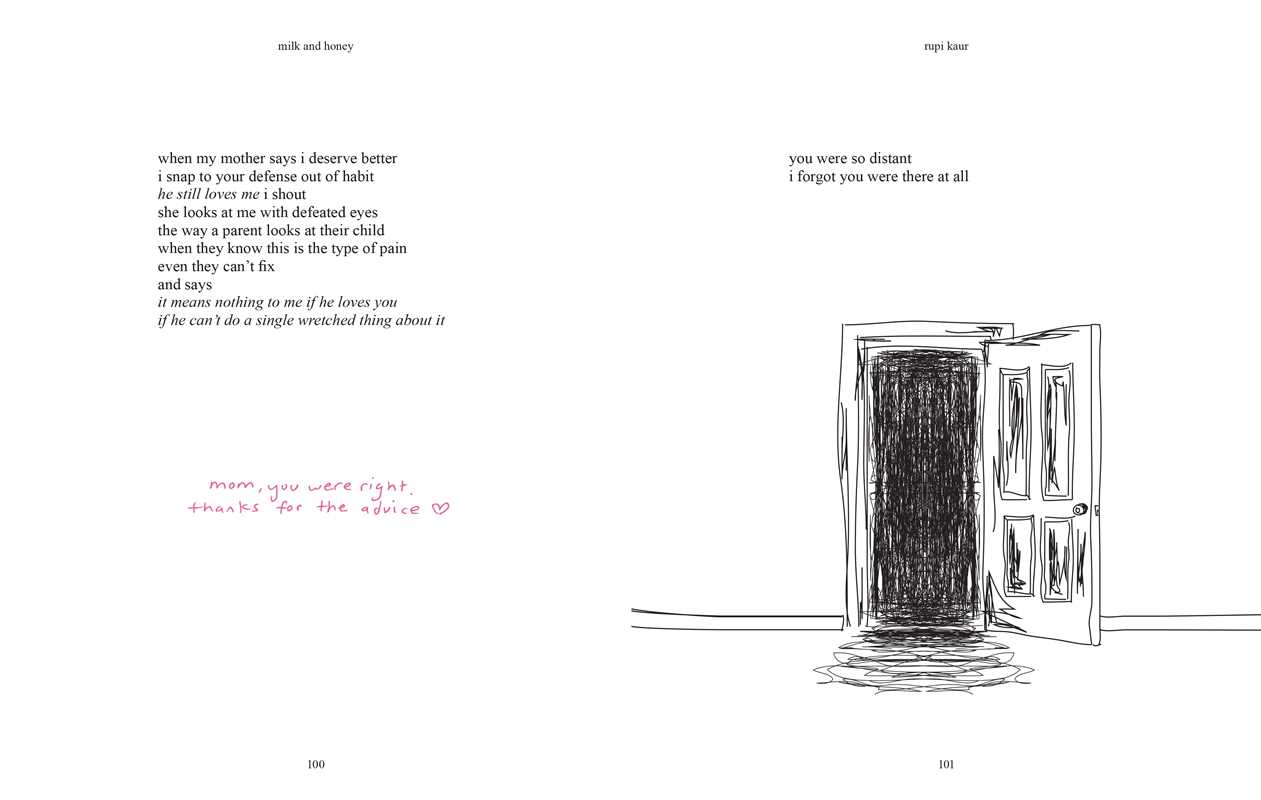 milk and honey
when my mother says i deserve better
i snap to your defense out of habit
he still loves me i shout
she looks at me with defeated eyes
the way a parent looks at their child
when they know this is the type of pain
even they can’t fix
and says
it means nothing to me if he loves you
if he can’t do a single wretched thing about it
mom, you were right.
thanks for the advice ♡
100
rupi kaur
you were so distant
i forgot you were there at all
101